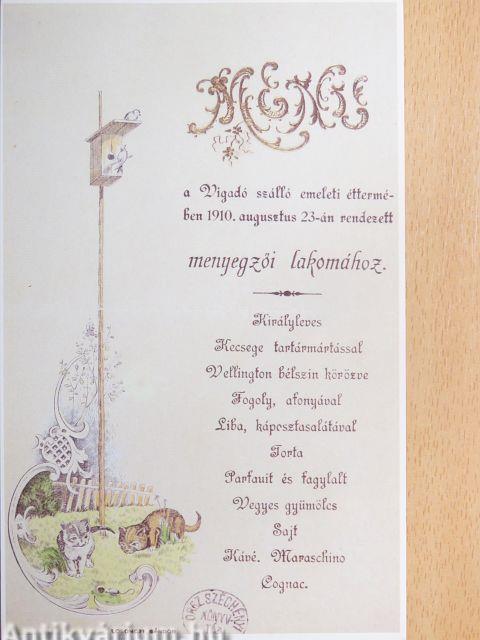 MENU
a Vigadó szálló emeleti éttermé-
ben 1910. augusztus 23-án rendezett
menyegzői lakomához.
Királyleves
Kecsege tartármártással
Vellington bélszin körözve
Fogoly, afonyával
Liba, káposztasalátával
Torta
Parfauit és fagylalt
Vegyes gyümölcs
Sajt
Kávé. Maraschino
Cognac.
ORSZ. SZÉCHÉNYI
Antikvárium.hu